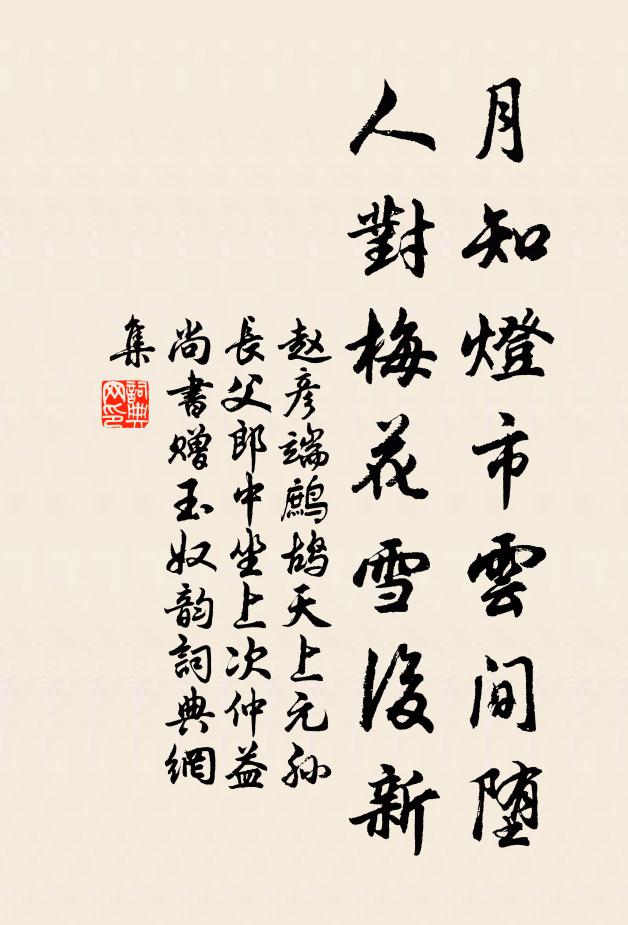 月知燈市雲間堕
人對梅花雪後新
赵彦端鷓鴣天上元孙
長父郎中坐上次仲益
尚書赠玉奴韵詞典網
集
詞典
网印